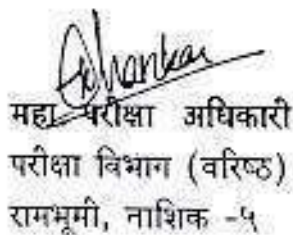 महा परीक्षा अधिकारी
परीक्षा विभाग (वरिष्ठ)
रामभूमी, नाशिक -५